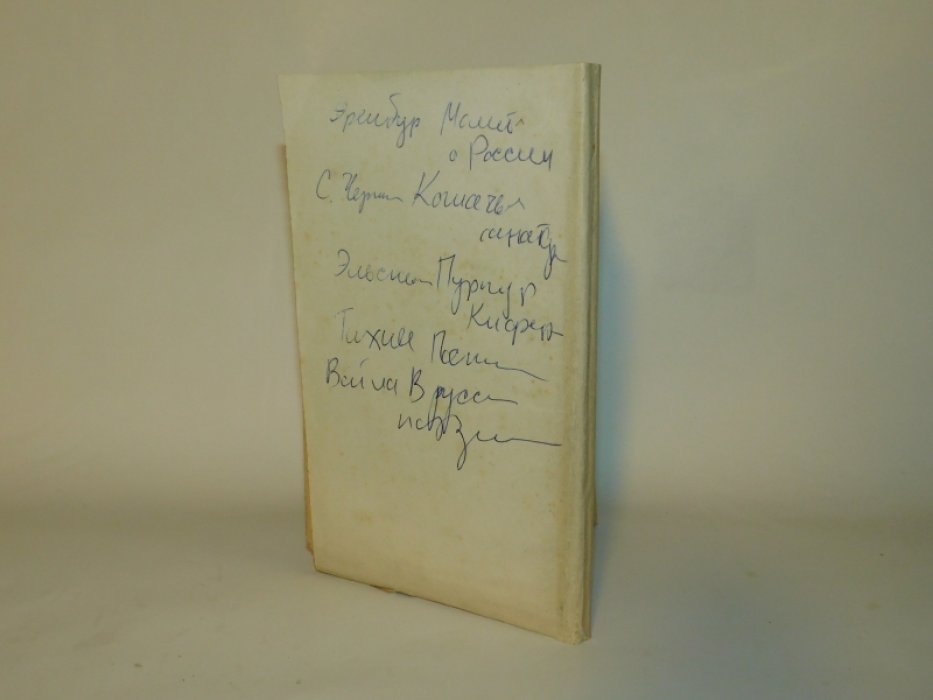 Эренбур Молит
о России
С. Черн Кошачья
санат
Эльснер Пурпур
Кифер
Тихие Песни
Война В русс
поэзи